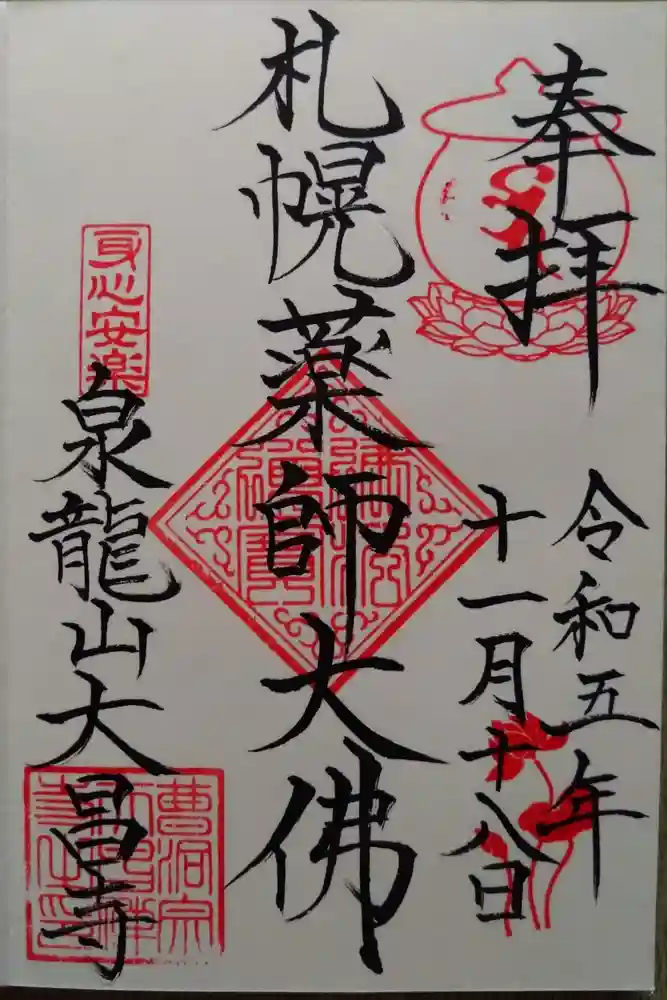 奉拝
令和五年
十一月十八日
札幌薬師大佛
身心安楽
泉龍山大昌寺